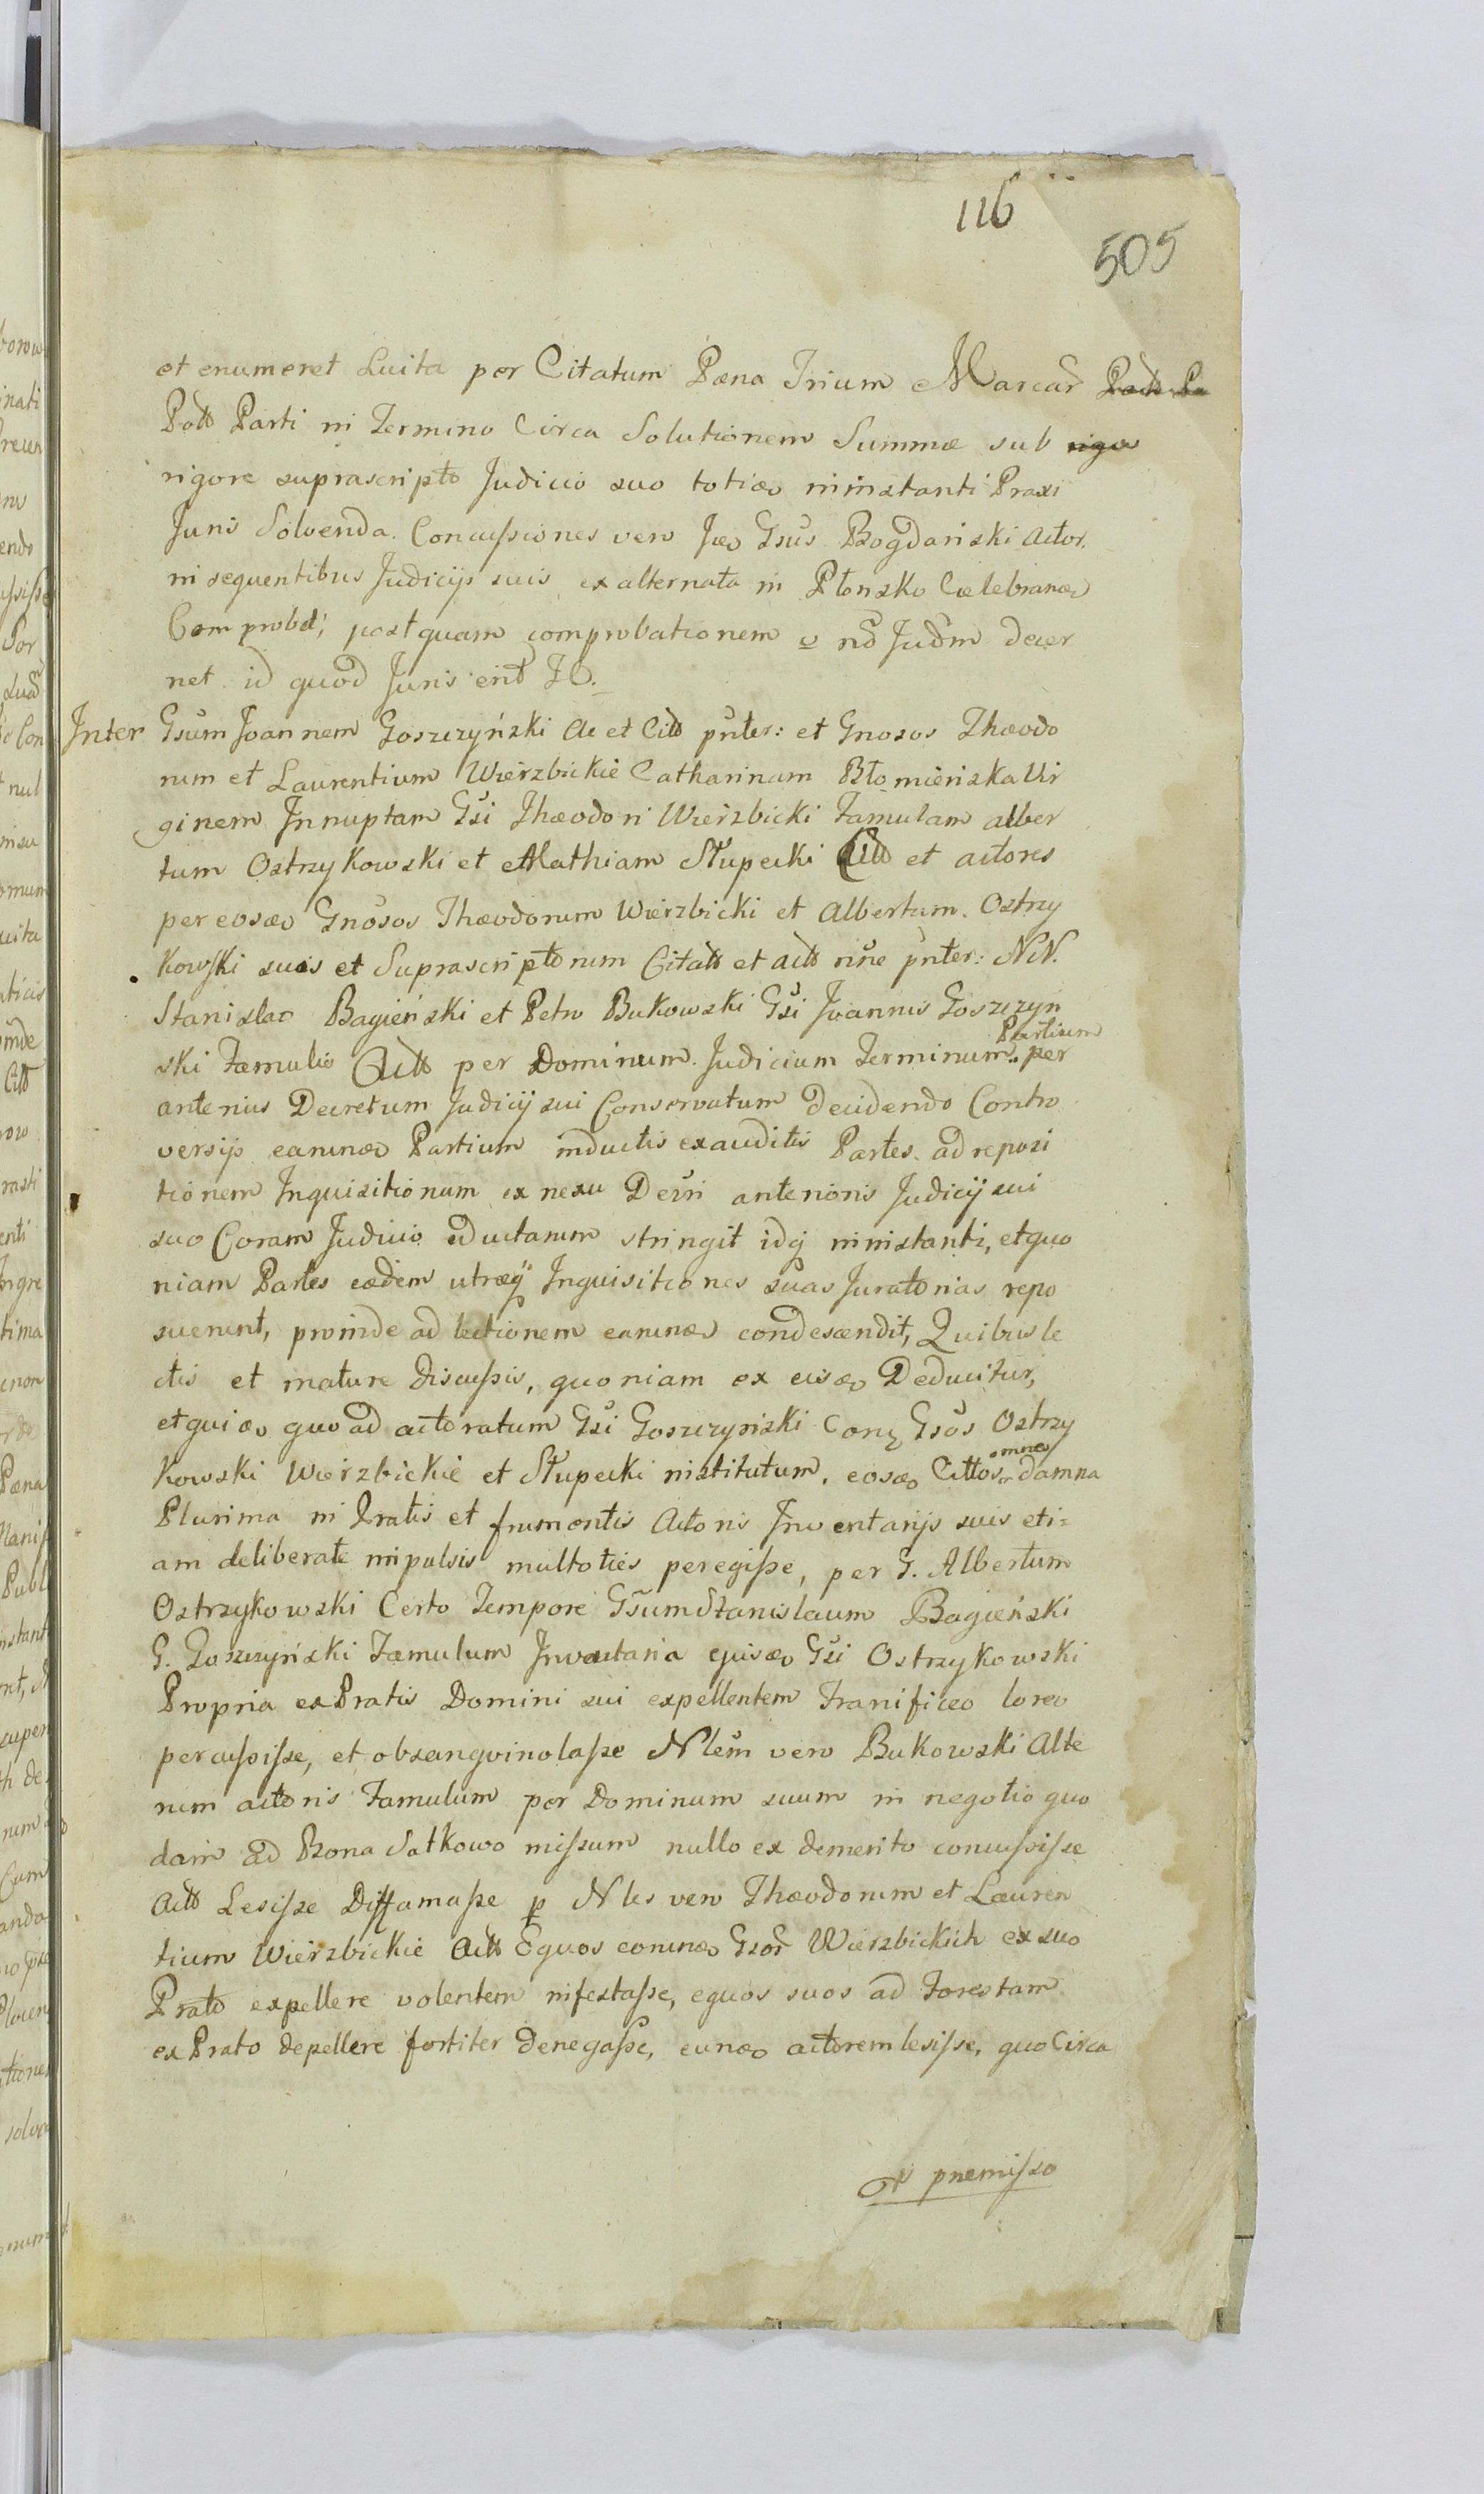 116
505
et enumeret Luita per Citatum Pæna Trium Marcar̃ Patt Pa
Patt Parti in Termino Circa Solutionem Summæ sub rigo
rigore suprascripto Judicio suo toties ininstanti Praxi
Juris Solvenda. Concussiones vero Gsus Bogdański Actor.
in sequentibus Judicijs suis ex alternata in Płonsko Celebranđ
Comprobet; postquam comprobationem nđ Juđm decer
net id quod Juris erit
Inter Gsum Joannem Goszczyński Ac et Citt pnter: et Gnosos Theodo
rum et Laurentium Wierzbickie Catharinam Błomieńska Vir
ginem Innuptam Gsi Theodori Wierzbicki Famulam alber
tum Ostrzykowski et Mathiam Słupecki Citt et actores
per eosđ Gnosos Theodorum Wierzbicki et Albertum Ostrzy
kowski suis et Suprascriptorum Citatt et actt nñe pnter: NN.
Stanislao Bagieński et Petro Bukowski Gsi Joannis Goszczyn
ski Famulis Actt per Dominum Judicium Terminum Partium per
anterius Decretum Judicij sui Conservatum decidendo Contro
versijs earundđ Partium inductis exauditis Partes ad reposi
tionem Inquisitionum ex nexu Decri anterioris Judicij sui
suo Coram Judicio eductarum stringit idq ininstanti, et quo
niam Partes eædem utræq Inquisitiones suas Juratorias repo
suerunt, proinde ad lectionem earundđ condescendit, Quibus le
ctis et mature discussis, quoniam ex eisđ Deducitur,
et quidđ quo ad actoratum Gsi Goszczyński Con Gsos Ostrzy
kowski Wierzbickie et Słupecki institutum, eosđ Cittos omnes damna
Plurima in Pratis et frumentis Actoris Inventarijs suis eti=
am deliberate impulsis multoties peregisse, per G. Albertum
Ostrzykowski Certo Tempore Gsum Stanislaum Bagieński
G. Goszczyński Famulum Inventaria ejusđ Gsi Ostrzykowski
Propria ex Pratis Domini sui expellentem Franificeo loreo
percussisse, et obsangvinolasse Nlem vero Bukowski Alte
rum actoris Famulum per Dominum suum in negotio quo
dam ad Bona Sałkowo missum nullo ex demerito concussisse
Actt Lesisse Diffamasse p Nles vero Theodorum et Lauren
tium Wierzbickie Actt Equos eorundđ Gsor̃ Wierzbickich ex suo
Prato expellere volentem infestasse, equos suos ad Forestam
ex Prato depellere fortiter denegasse, eundđ actorem lesisse, quo Circa
præmisso